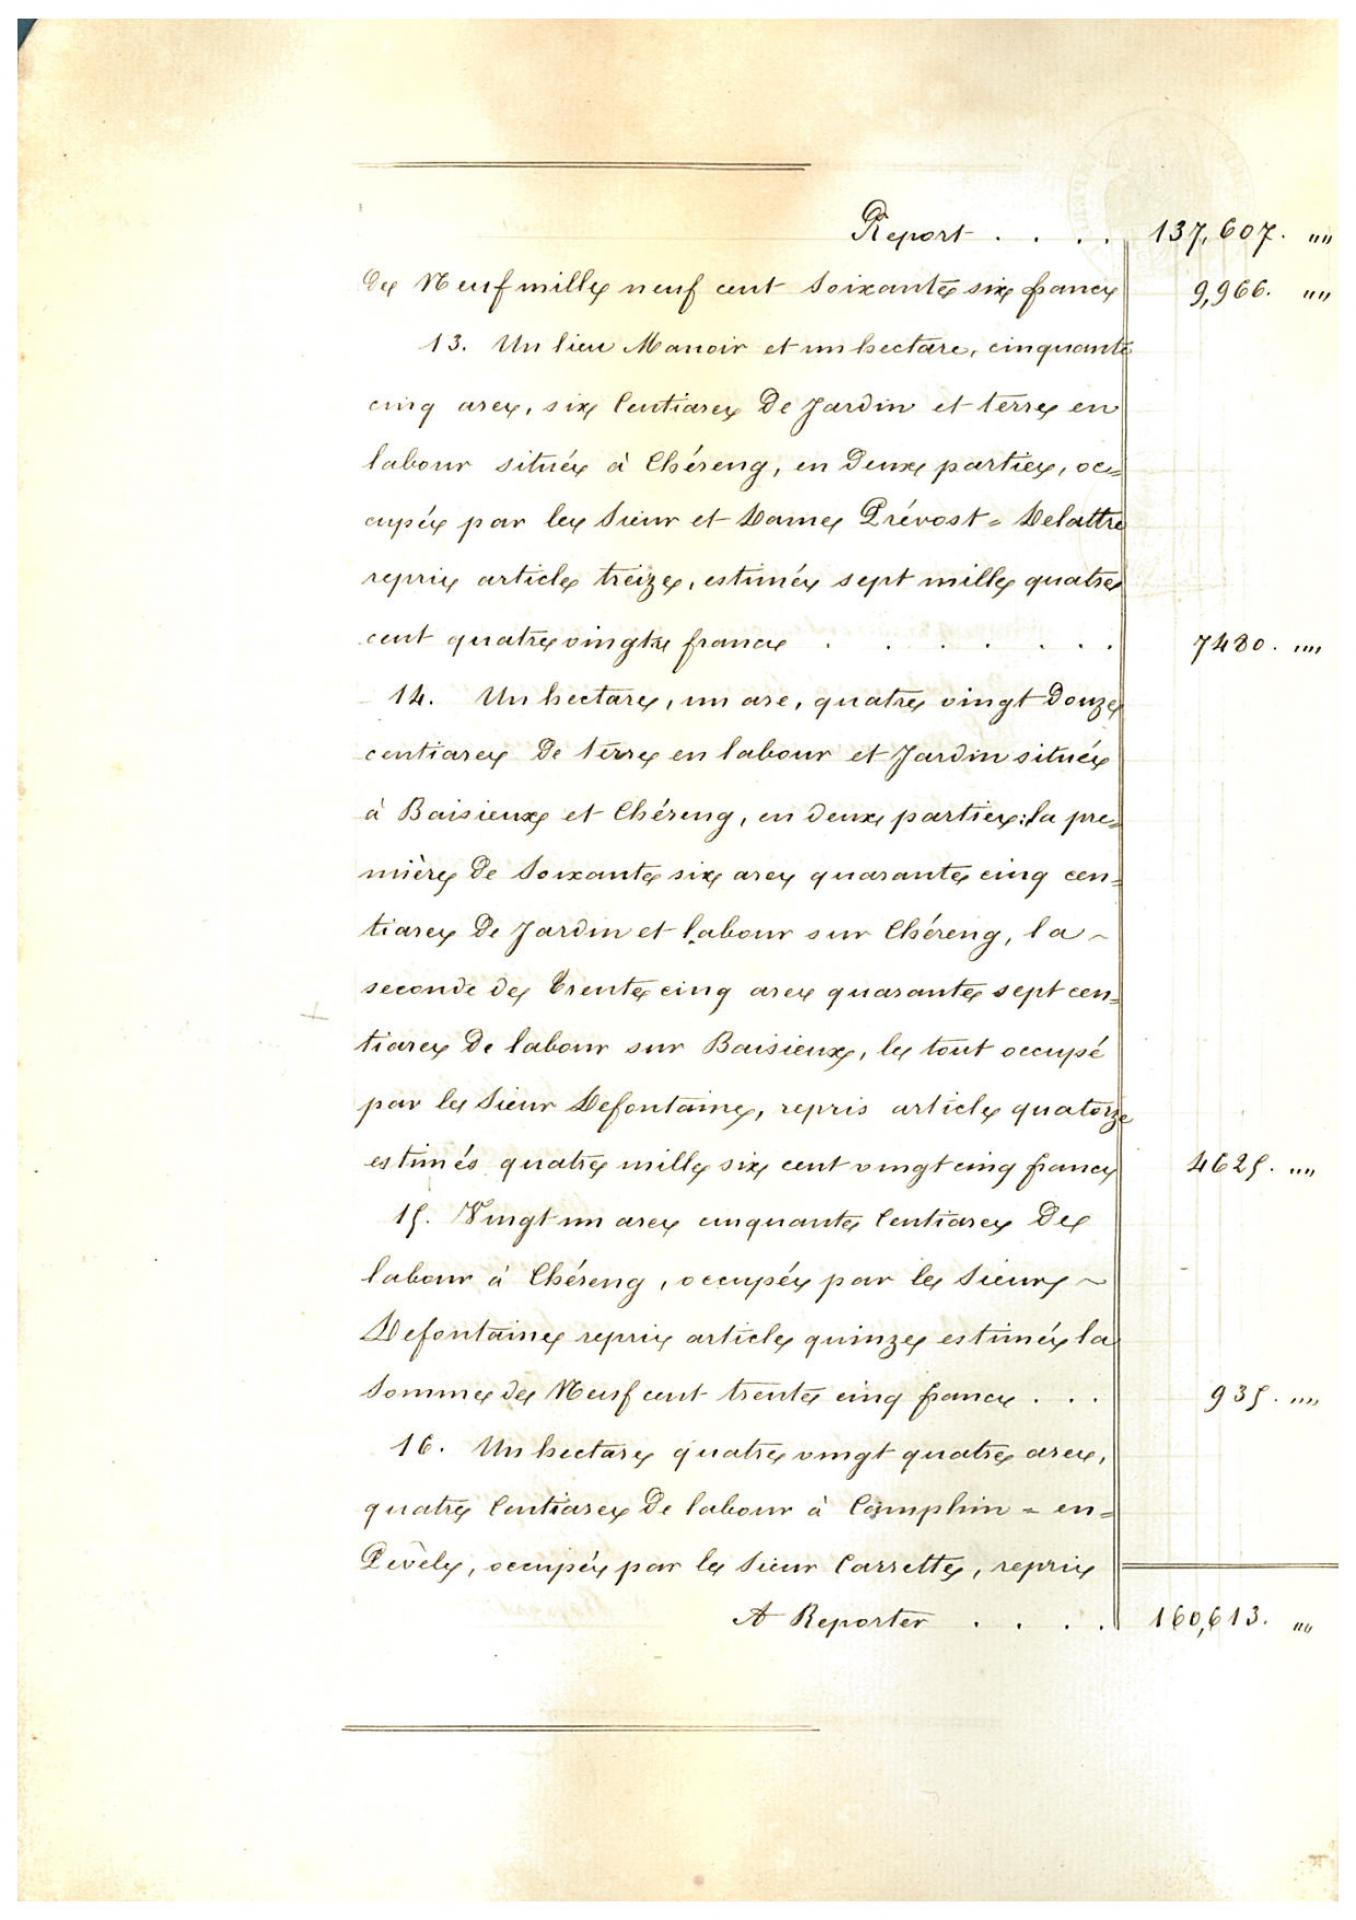 Report . . . . 137,607. ""
de Neuf mille neuf cent soixante six francs 9,966. ""
13. Un lieu Manoir et un hectare, cinquante
cinq ares, six Centiares De Jardin et terre en
labour située à Chéreng, en Deux parties, oc=
cupés par les Sieur et Dame Prévost = Delattre
repris article treize, estimés sept mille quatre
cent quatre vingts francs . . . . . . 7480. ""
14. Un hectare, un are, quatre vingt Douze
centiares De terre en labour et Jardin situés
à Baisieux et Chéreng, en deux parties: la pre=
mière De Soixante six ares quarante cinq cen=
tiares De Jardin et labour sur Chéreng, la ~
seconde de Trente cinq ares quarante sept cen=
tiares De labour sur Baisieux, le tout occupé
par le Sieur Defontaine, repris article quatorze
estimés quatre mille six cent vingt cinq francs 4625. ""
15. Vingt un ares cinquante Centiares De
labour à Chéreng, occupés par le Sieur ~
Defontaine repris article quinze estimés la
Somme de Neuf cent trente cinq francs . . . 935. ""
16. Un hectare quatre vingt quatre ares,
quatre Centiares De labour à Camphin = en=
Pévèle, occupés par le Sieur Carrette, repris
A Reporter . . . . 160,613. ""